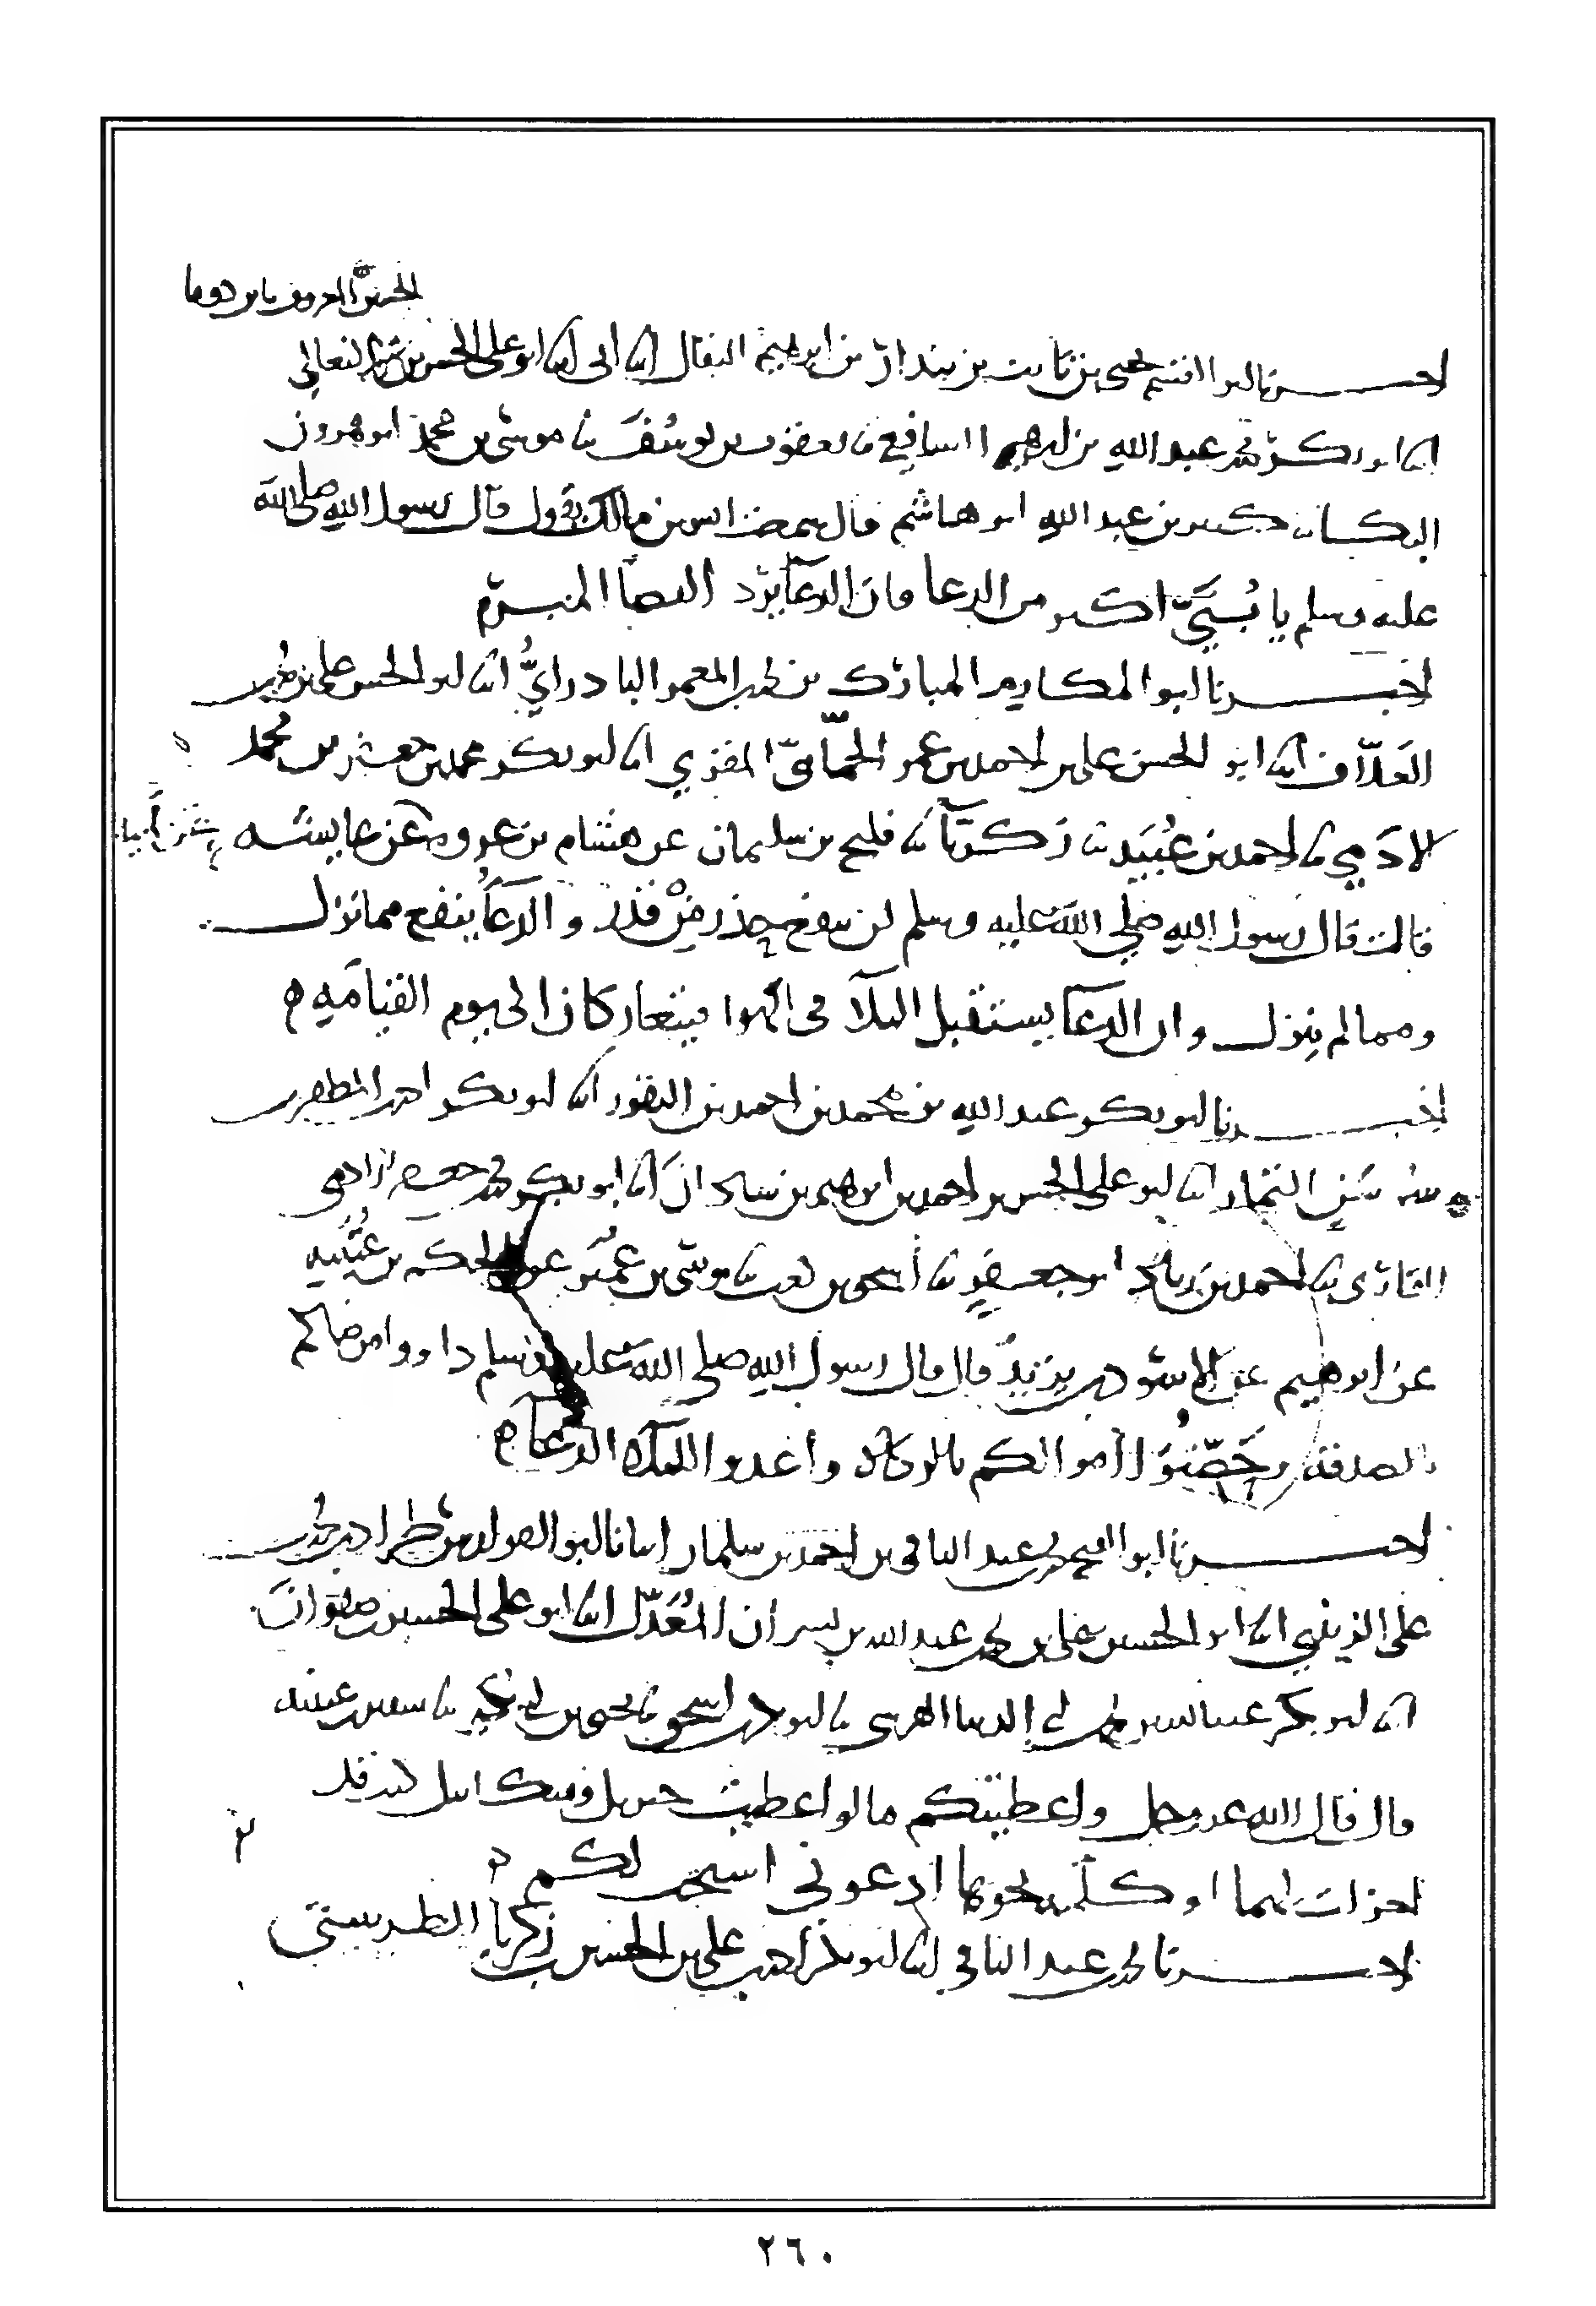 الحسن المعروف بابن دوما
اخبرنا ابو القسم يحيى بن ثابت بن بندار بن ابراهيم البقال انا ابى انا ابو على الحسن بن النعالي
انا ابو بكر محمد بن عبد الله بن ابرهيم الشافعي نا يعقوب بن يوسف نا موسى بن محمد ابو هرون
البكا نا كثير بن عبد الله ابو هاشم قال سمعت انس بن مالك يقول قال رسول الله صلى الله
عليه وسلم يا بُنَيَّ اكثر من الدعا فان الدعآ يرد القضا المبرم
اخبرنا ابو المكارم المبارك بن محمد بن المعمر البادرايُّ انا ابو الحسن على بن محمد بن
العَلّاف انا ابو الحسن على بن احمد بن عمر الحمّاميّ المقري انا ابو بكر محمد بن جعفر بن محمد
الادَمي نا احمد بن عُبَيد نا زكريّا نا فليح بن سليمان عن هشام بن عروه عن عايشه
قالت قال رسول الله صلى الله عليه وسلم لن ينفع حذر مِنْ قدر والدعآُ ينفع مما نزل
ومما لم ينزل وان الدعآ يستقبل البلآ فى الهوا فيتعاركان الى يوم القيامه
اخبرنا ابو بكر عبد الله بن محمد بن احمد بن النقور انا ابو بكر احمد بن المظفر بن
سوسن التمار انا ابو على الحسن بن احمد بن ابرهيم بن شاذان انا ابو بكر محمد بن جعفر الادمى
القارى نا احمد بن ابو جعفر نا اسحق بن كعب نا موسى بن عُمَير عن الحكم بن عُتَيبه
عن ابرهيم عن الاسود بن يزيد قال قال رسول الله صلى الله عليه وسلم داووا مرضاكم
بالصدقه وحَصّنُوا اموالكم بالزكاه واعدوا للبلاء الدعآ
اخبرنا ابو الفتح محمد بن عبد الباقى بن احمد بن سلمان انبانا ابو الفوارس طراد بن محمد بن
على الزينبي انا ابو الحسين على بن محمد بن عبد الله بن بشران المُعَدّل انا ابو على الحسين بن صفوانَ
انا ابو بكر عبد الله بن محمد بن ابي الدنيا القرشى نا ابو بكر بن اسحق نا يحيى بن ابي بكير نا سفين بن عيينه
قال قال الله عز وجل واعطيتكم ما لو اعطيت جبريل وميكائيل
ادعونى استجب لكم
اخبرنا محمد بن عبد الباقى انا ابو بكر احمد بن على بن الحسين بن زكريا الطريثيثى
٢٦٠